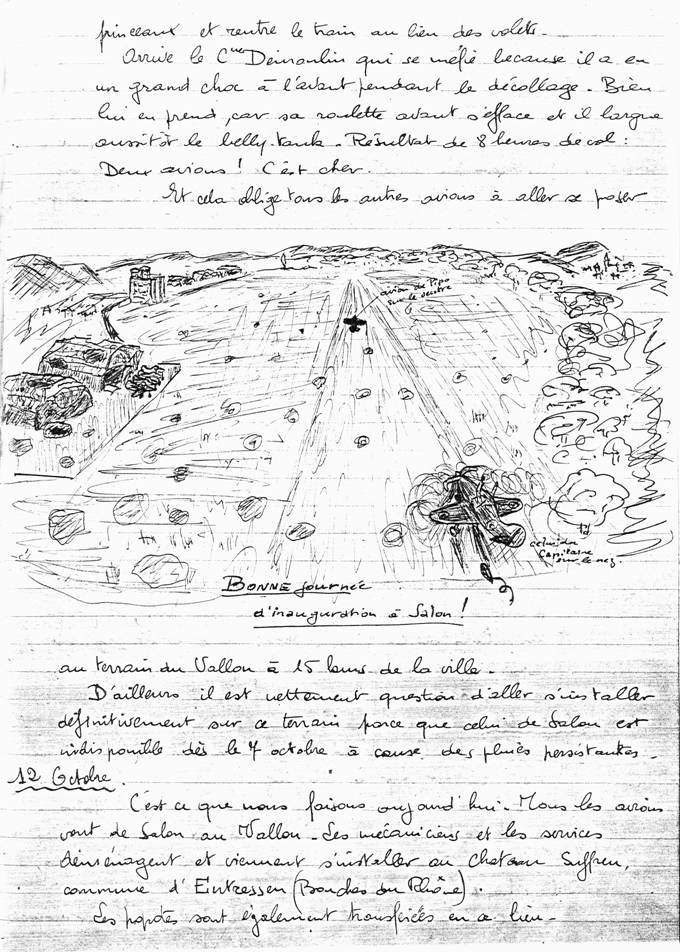 princeaux et rentre le train au lieu des volets.
Arrive le Cne Demoulin qui se méfie because il a eu
un grand choc à l'avant pendant le décollage. Bien
lui en prend, car sa roulette avant s'efface et il largue
aussitôt le belly-tank. Résultat de 8 heures de vol :
Deux avions ! C'est cher.
Et cela oblige tous les autres avions à aller se poser
avion de Pipo
sur le ventre
celui du
Capitaine
sur le nez.
BONNE journée
d'inauguration à Salon !
au terrain du Vallon à 15 kms de la ville.
D'ailleurs il est nettement question d'aller s'installer
définitivement sur ce terrain parce que celui de Salon est
indisponible dès le 7 octobre à cause des pluies persistantes.
12 Octobre.
C'est ce que nous faisons aujourd'hui. Tous les avions
vont de Salon au Vallon. Les mécaniciens et les services
déménagent et viennent s'installer au Chateau Suffren,
commune d'Entressen (Bouches du Rhône).
Les popotes sont également transférées en ce lieu.